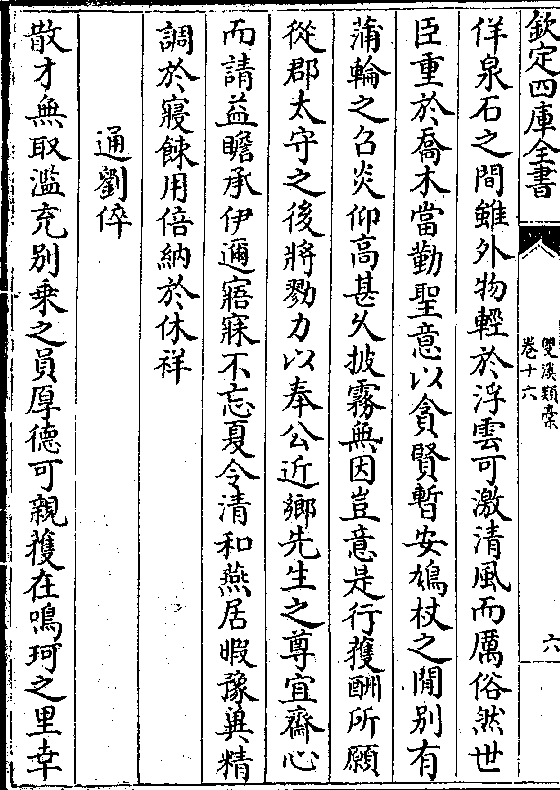 欽定四庫全書
雙溪類槀
卷十六
六
佯泉石之間雖外物輕於浮雲可激清風而厲俗然世
臣重於喬木當勤聖意以貪賢暫安鳩杖之閒别有
蒲輪之召炎仰高甚乆披霧無因豈意是行獲酬所願
從郡太守之後將勠力以奉公近鄉先生之尊宜齋心
而請益瞻承伊邇寤寐不忘夏令清和燕居暇豫㒷精
調於寢餗用倍納於休祥
通劉倅
散才無取濫充别乗之員厚德可親獲在鳴珂之里幸